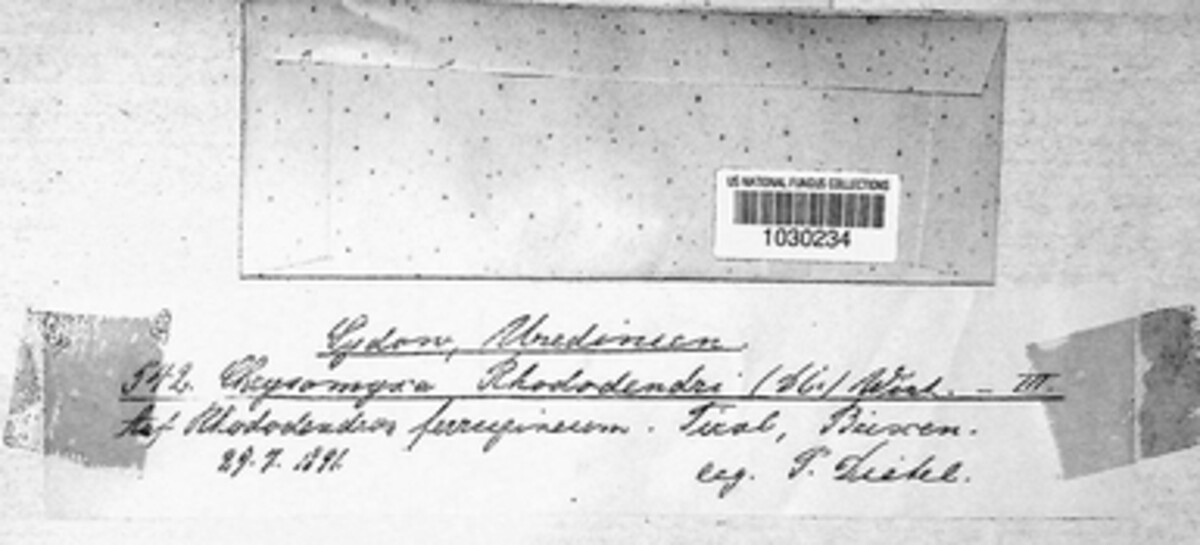 US NATIONAL FUNGUS COLLECTIONS
1030234
Sydow, Uredineen.
542. Chrysomyxa Rhododendri (DC.) Wint. – III.
Auf Rhododendron ferrugineum. Tirol, Brixen.
29.7.1891. leg. P. Dietel.